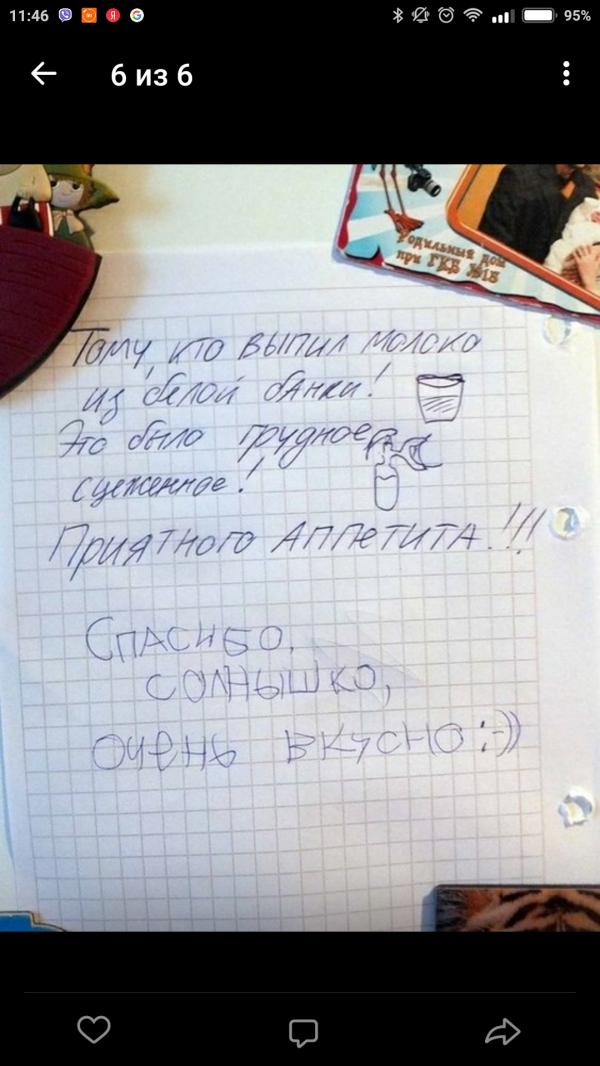 11:46
95%
6 из 6
Родильный дом
при ГКБ №15
Тому, кто выпил молоко
из белой банки!
Это было грудное
сцеженное!
Приятного Аппетита!!!
Спасибо,
солнышко,
очень вкусно :-))